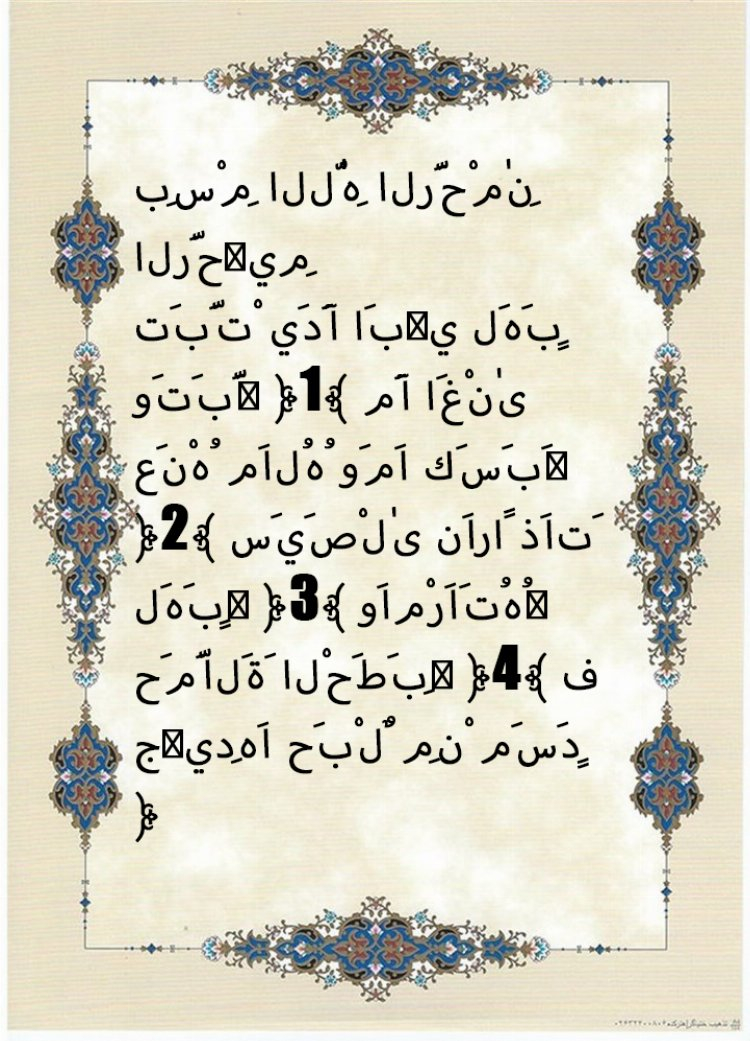 بِسْمِ اللّٰهِ الرَّحْمٰنِ
الرَّحيمِ
تَبَّتْ يَدَآ اَبي لَهَبٍ
وَتَبَّ ﴿1﴾ مَآ اَغْنٰى
عَنْهُ مَالُهُ وَمَا كَسَبَ
﴿2﴾ سَيَصْلٰى نَارًا ذَاتَ
لَهَبٍ ﴿3﴾ وَامْرَاَتُهُ
حَمَّالَةَ الْحَطَبِ ﴿4﴾ ف
جيدِهَا حَبْلٌ مِنْ مَسَدٍ
﴿